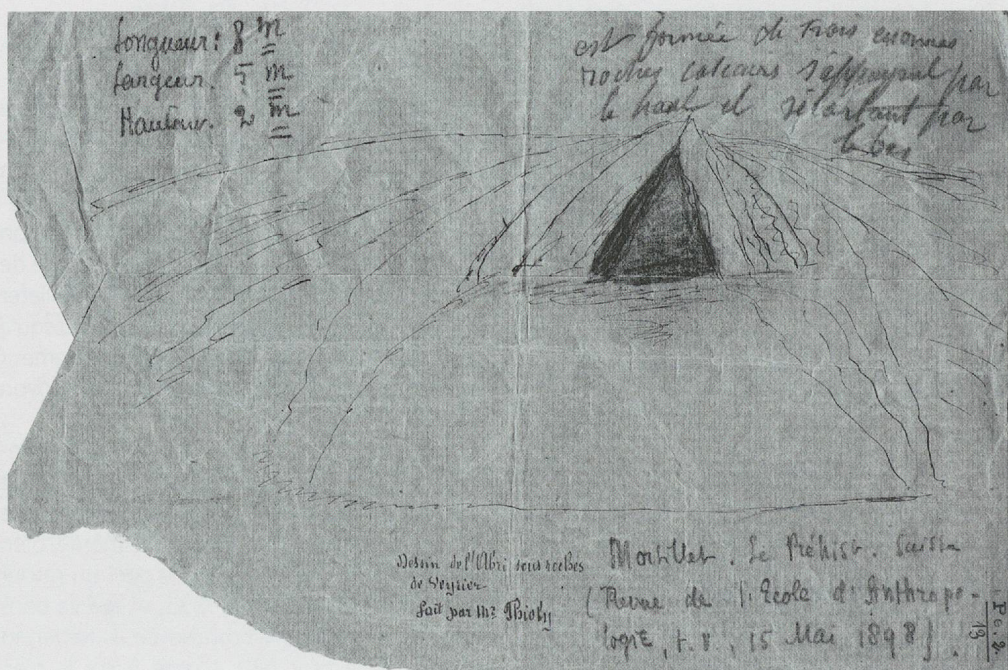 Longueur: 8 m
Largeur. 5 m
Hauteur. 2 m
est formée de trois enormes
roches calcaires s'appuyant par
le haut et s'écartant par
le bas
Dessin de l'Abri sous roches
de Veyrier
fait par Mr Thioly
Mortillet. Le Préhist. Suisse
(Revue de l'Ecole d'Anthropo-
logie, t. 8, 15 Mai 1898).